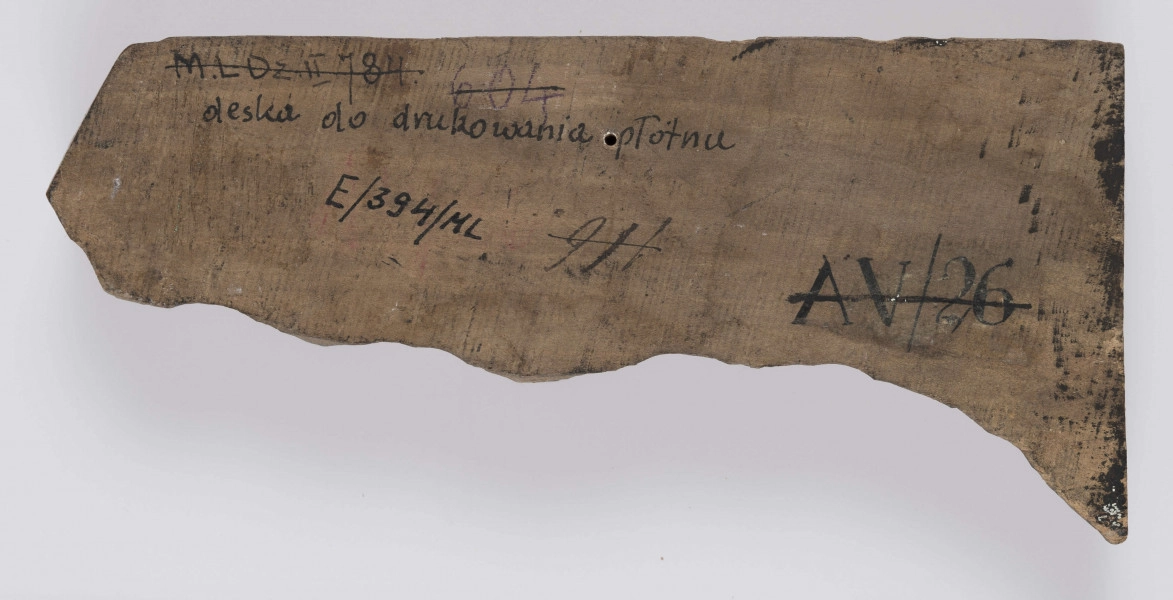 M.L Dz.II 784
604
deska do drukowania płótnu
E/394/ML
AV/26